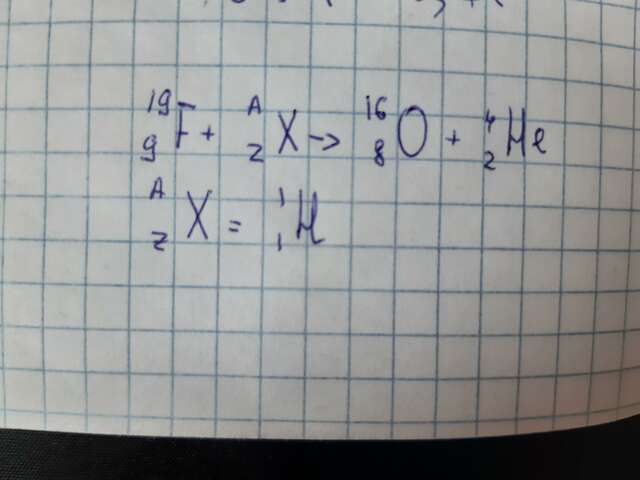 ¹⁹₉F + ᴬ_Z X → ¹⁶₈O + ⁴₂He
ᴬ_Z X = ¹₁H